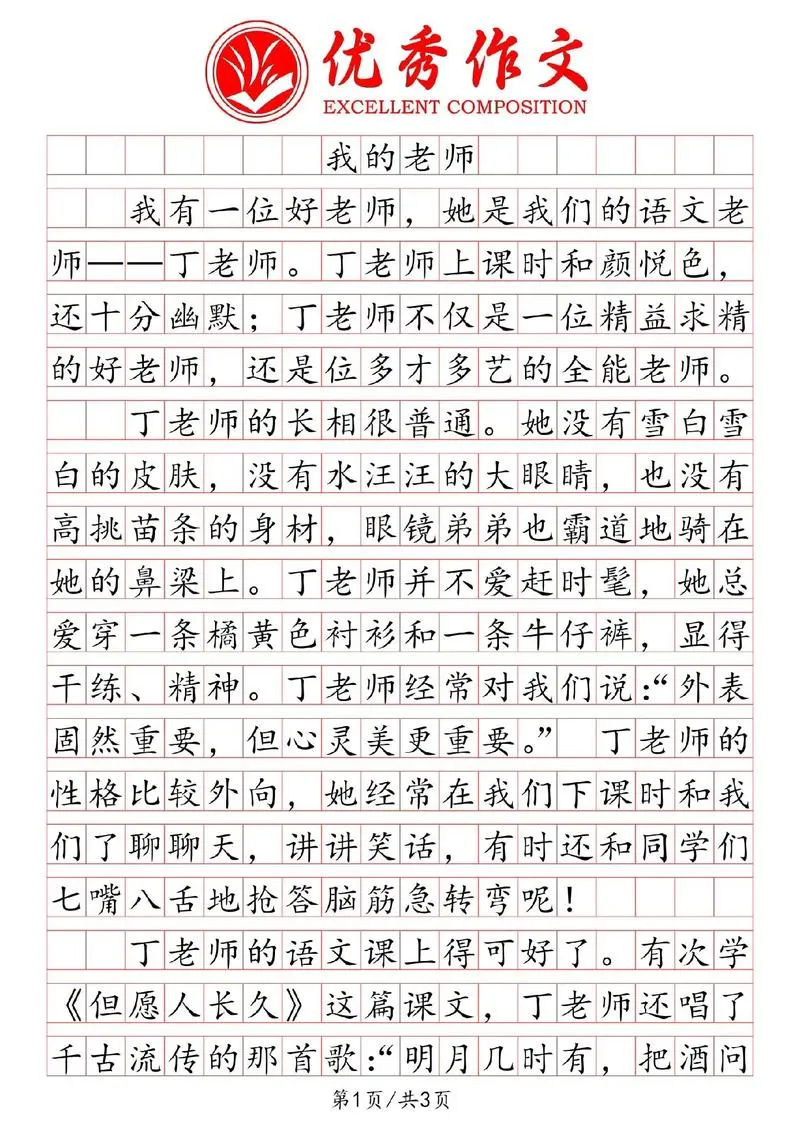 优秀作文
EXCELLENT COMPOSITION
我的老师
我有一位好老师，她是我们的语文老
师——丁老师。丁老师上课时和颜悦色，
还十分幽默；丁老师不仅是一位精益求精
的好老师，还是位多才多艺的全能老师。
丁老师的长相很普通。她没有雪白雪
白的皮肤，没有水汪汪的大眼睛，也没有
高挑苗条的身材，眼镜弟弟也霸道地骑在
她的鼻梁上。丁老师并不爱赶时髦，她总
爱穿一条橘黄色衬衫和一条牛仔裤，显得
干练、精神。丁老师经常对我们说：“外表
固然重要，但心灵美更重要。” 丁老师的
性格比较外向，她经常在我们下课时和我
们了聊聊天，讲讲笑话，有时还和同学们
七嘴八舌地抢答脑筋急转弯呢！
丁老师的语文课上得可好了。有次学
《但愿人长久》这篇课文，丁老师还唱了
千古流传的那首歌：“明月几时有，把酒问
第1页/共3页